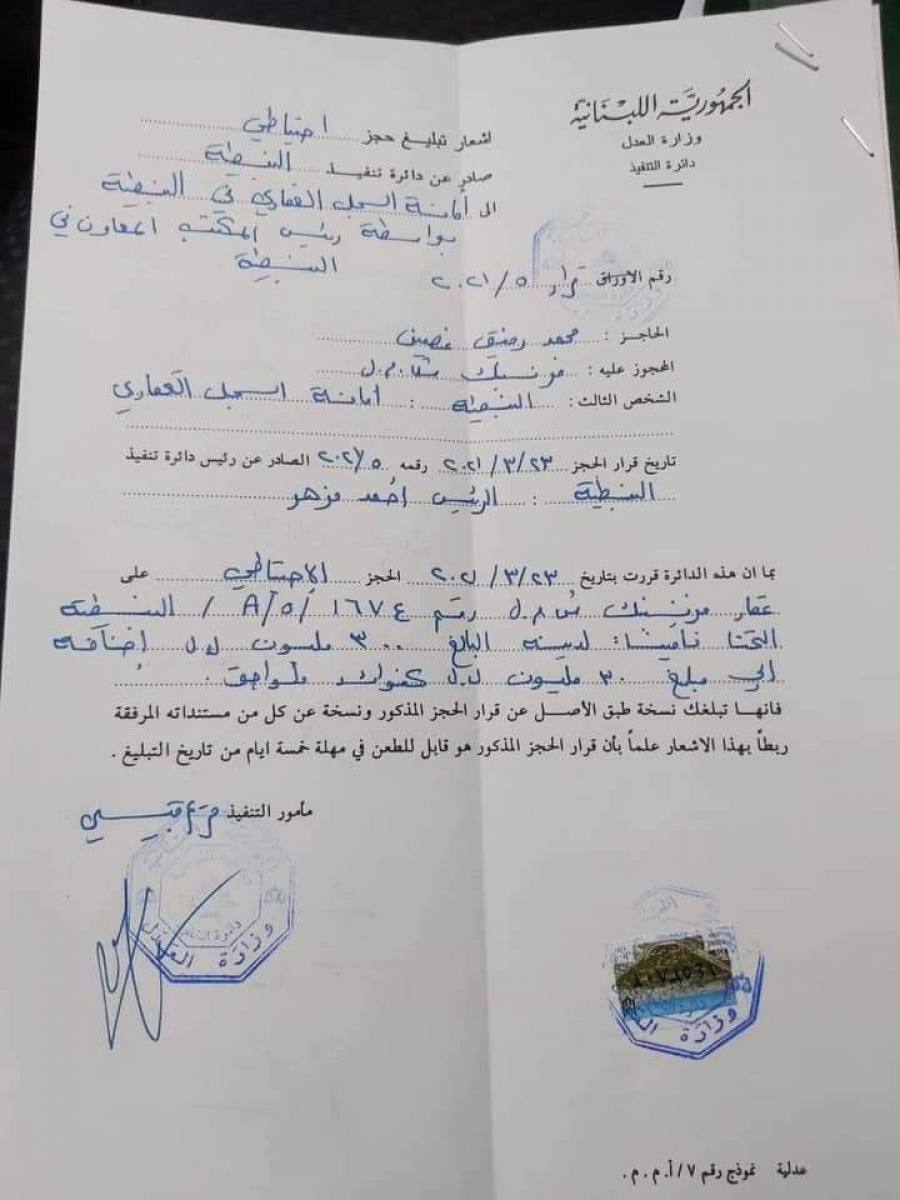 الجمهورية اللبنانية
وزارة العدل
دائرة التنفيذ
اشعار تبليغ حجز احتياطي
صادر عن دائرة تنفيذ النبطية
الى أمانة السجل العقاري في النبطية
بواسطة رئيس المكتب المعاون في
النبطية
رقم الاوراق قرار ٥/٢٠٢١
الحاجز : محمد رفيق
المحجوز عليه : فرنسبنك ش.م.ل
الشخص الثالث : النبطية : امانة السجل العقاري
تاريخ قرار الحجز ٢٣/٣/٢٠٢١ رقمه ٥/٢٠٢١ الصادر عن رئيس دائرة تنفيذ
النبطية : الرئيس احمد مزهر
بما ان هذه الدائرة قررت بتاريخ ٢٣/٣/٢٠٢١ الحجز الإحتياطي على
عقار فرنسبنك ش م ل رقم ١٦٧٤/٥/A / النبطية
التحتا تأميناً لدينه البالغ ٣٠٠ مليون ل.ل اضافة
الى مبلغ ٣٠ مليون ل.ل كفوائد ولواحق .
فانها تبلغك نسخة طبق الأصل عن قرار الحجز المذكور ونسخة عن كل من مستنداته المرفقة
ربطاً بهذا الاشعار علماً بأن قرار الحجز المذكور هو قابل للطعن في مهلة خمسة ايام من تاريخ التبليغ .
مأمور التنفيذ
وزارة العدل
وزارة العدل
عدلية نموذج رقم ٧ / أ . م . م .